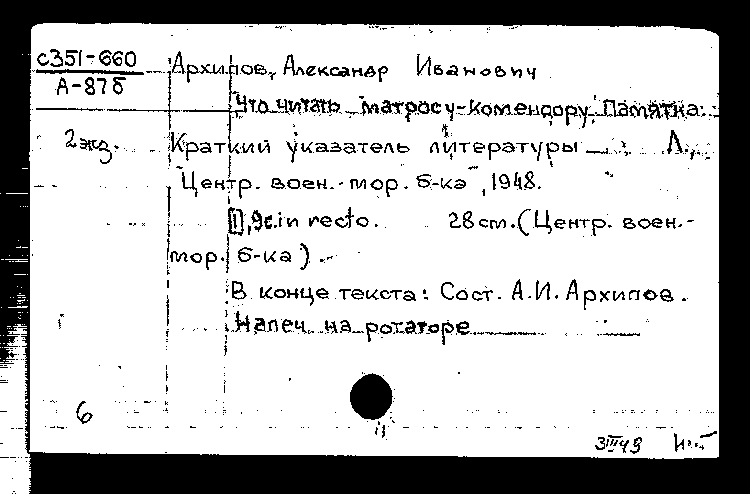 с351-660
А-876
Архипов, Александр Иванович
Что читать матросу-комендору. Памятка.
2 экз.
Краткий указатель литературы — Л.,
Центр. воен.-мор. б-ка, 1948.
[1], 9с. in recto. 28 см. (Центр. воен.-
мор. б-ка).
В конце текста: Сост. А.И. Архипов.
Напеч. на ротаторе
6
3 III 49